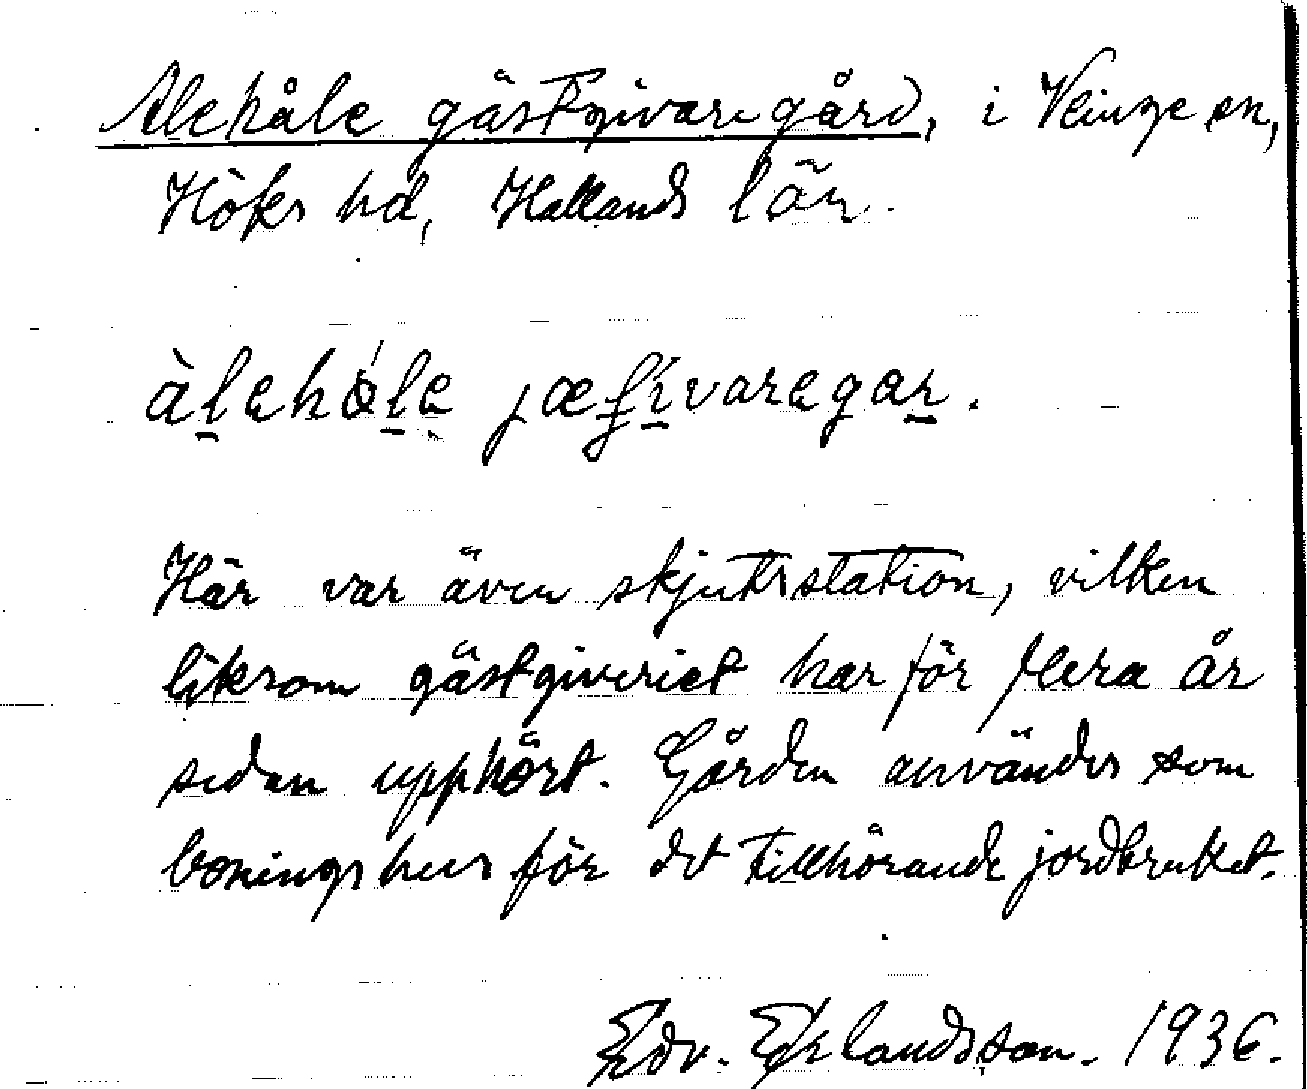 Alehåle gästgivaregård, i Veinge sn,
Höks hd, Hallands län.
àlehåle jæʃivaregar.
Här var även skjutsstation, vilken
liksom gästgiveriet har för flera år
sedan upphört. Gården användes som
boningshus för det tillhörande jordbruket.
Edv. Eklandsson. 1936.